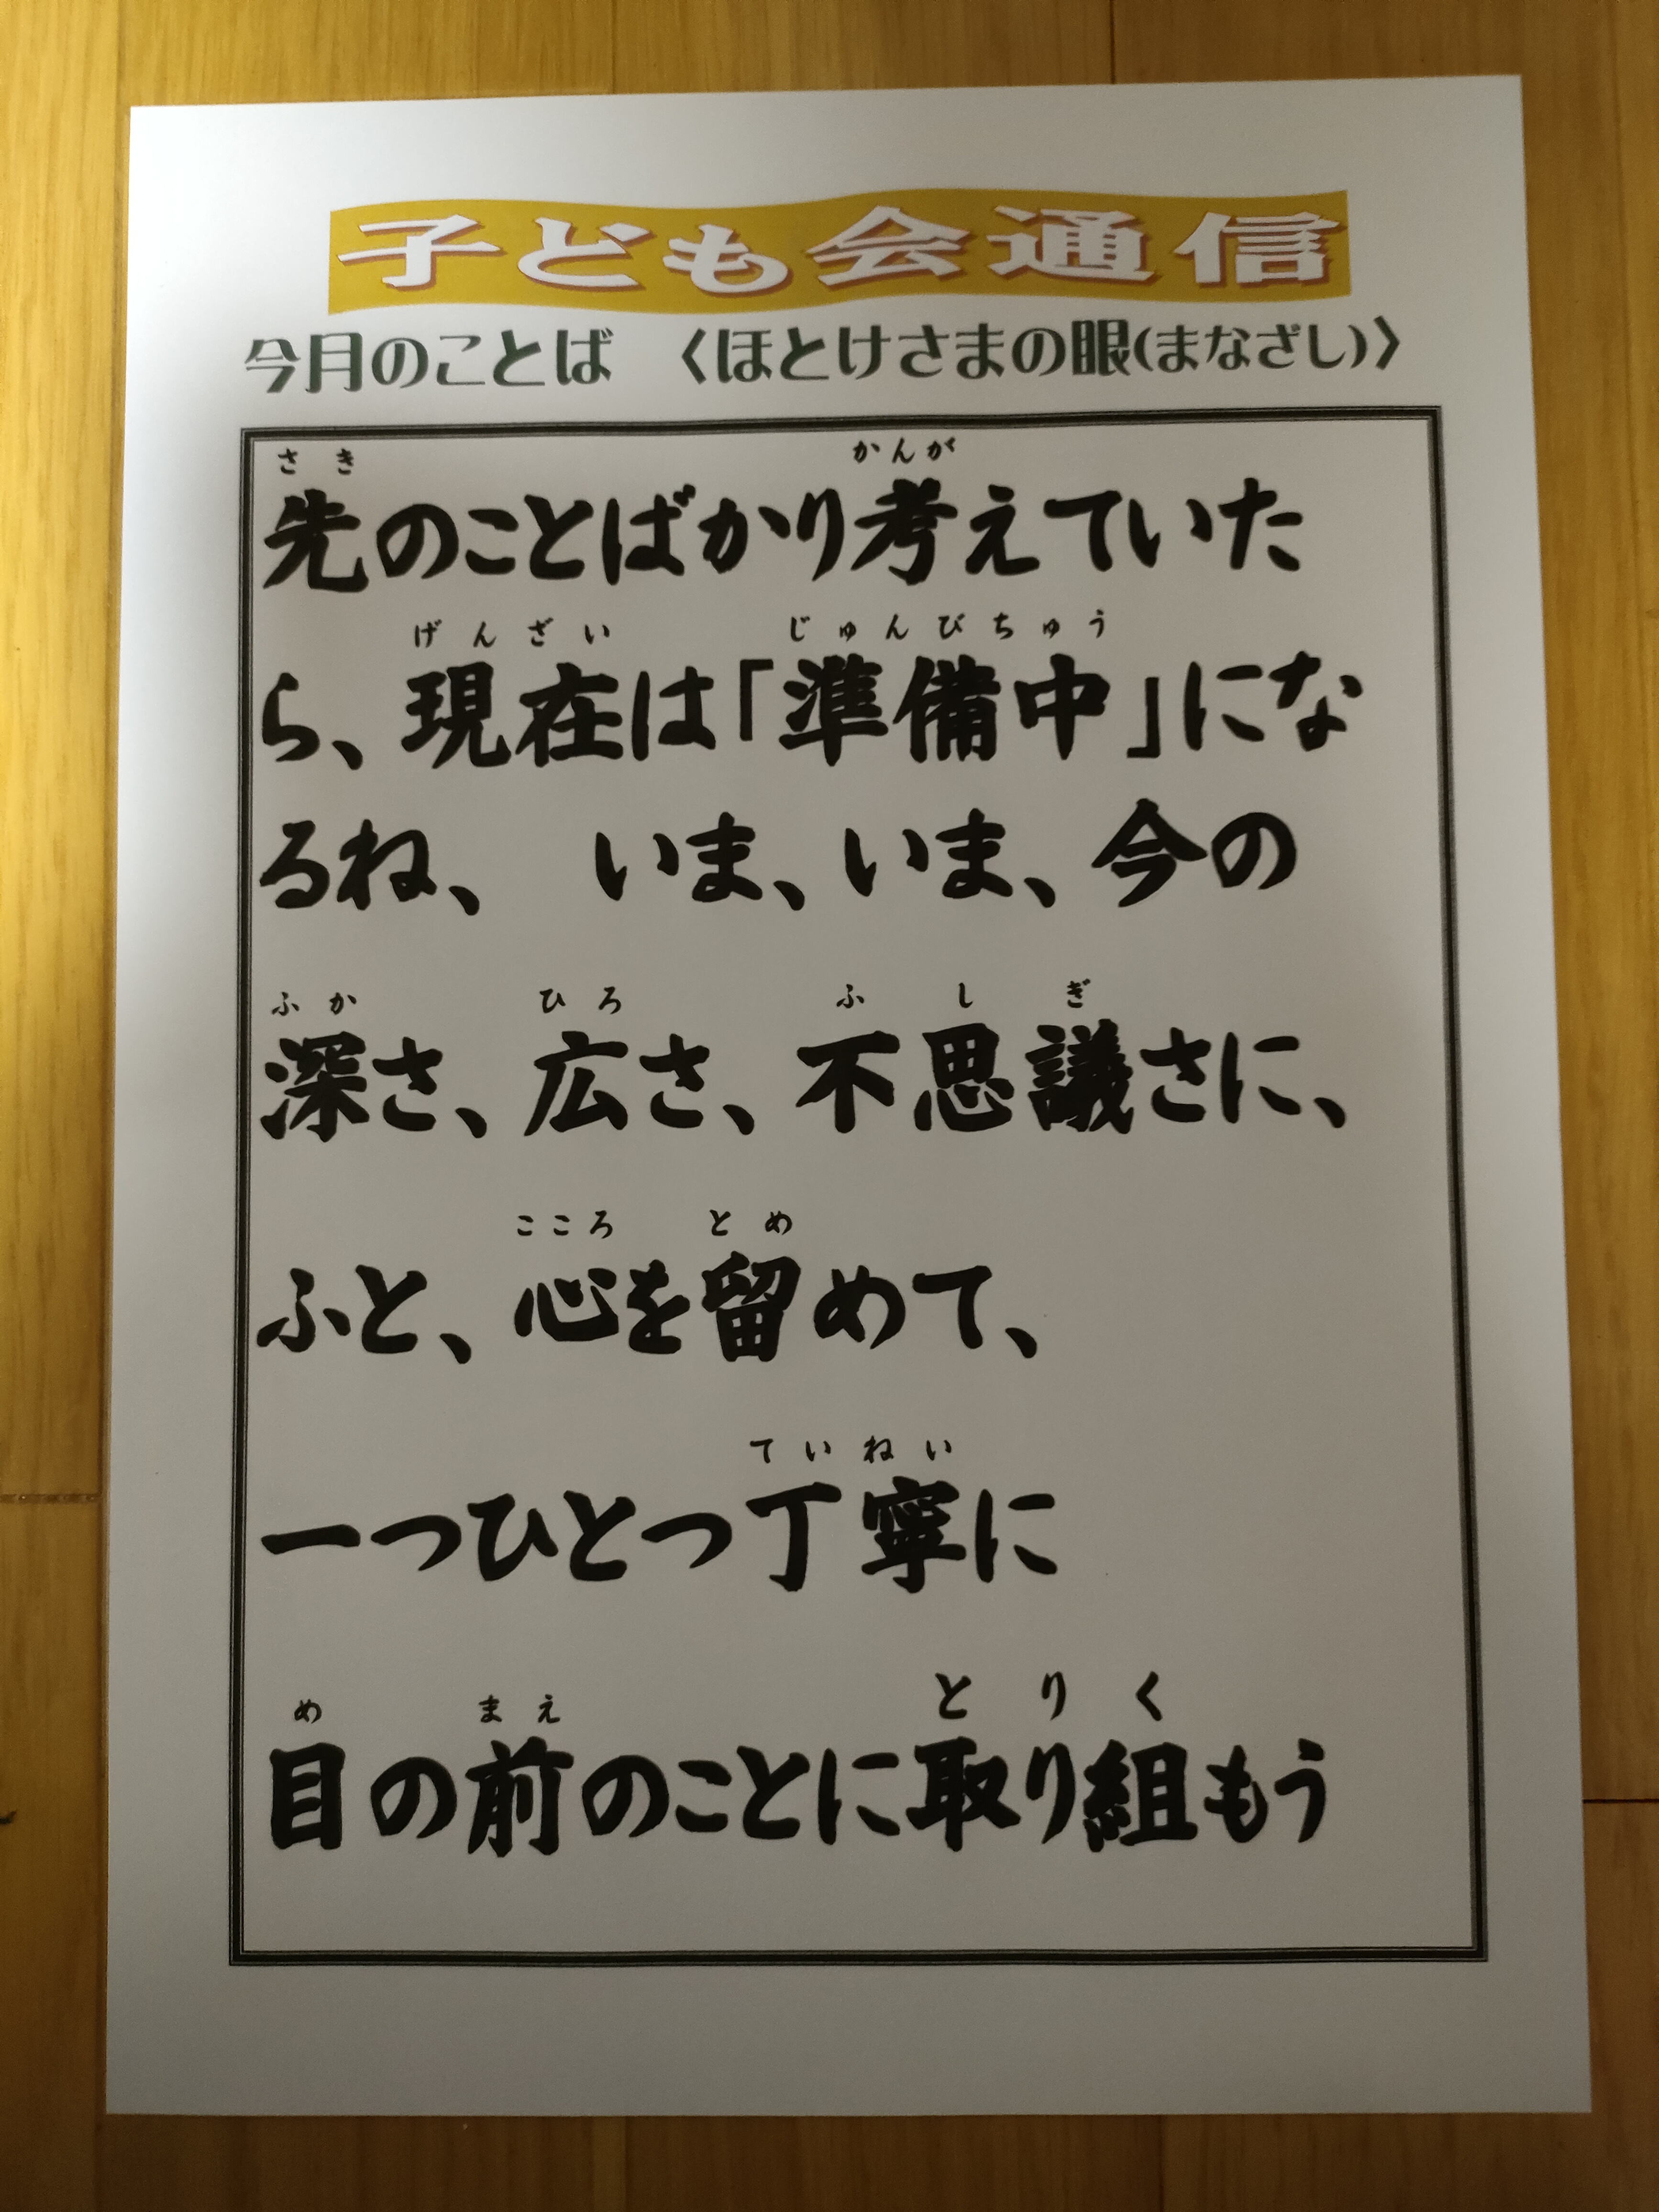 子ども会通信
今月のことば　〈ほとけさまの眼(まなざし)〉
さき　かんが
先のことばかり考えていた
げんざい　じゅんびちゅう
ら、現在は「準備中」にな
るね、　いま、いま、今の
ふか　ひろ　ふしぎ
深さ、広さ、不思議さに、
こころ　とめ
ふと、心を留めて、
ていねい
一つひとつ丁寧に
め　まえ　とりく
目の前のことに取り組もう